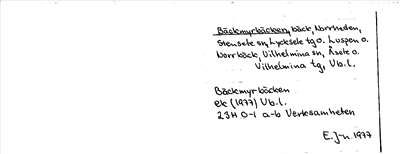 Bäckmyrbäcken, bäck, Norrheden,
Stensele sn, Lycksele tg o. Luspen o.
Norrbäck, Vilhelmina sn, Åsele o.
Vilhelmina tg, Vb.l.
Bäckmyrbäcken
ek (1977) Vb.l.
23H 0-1 a-b Verksamheten
E.J-n 1977